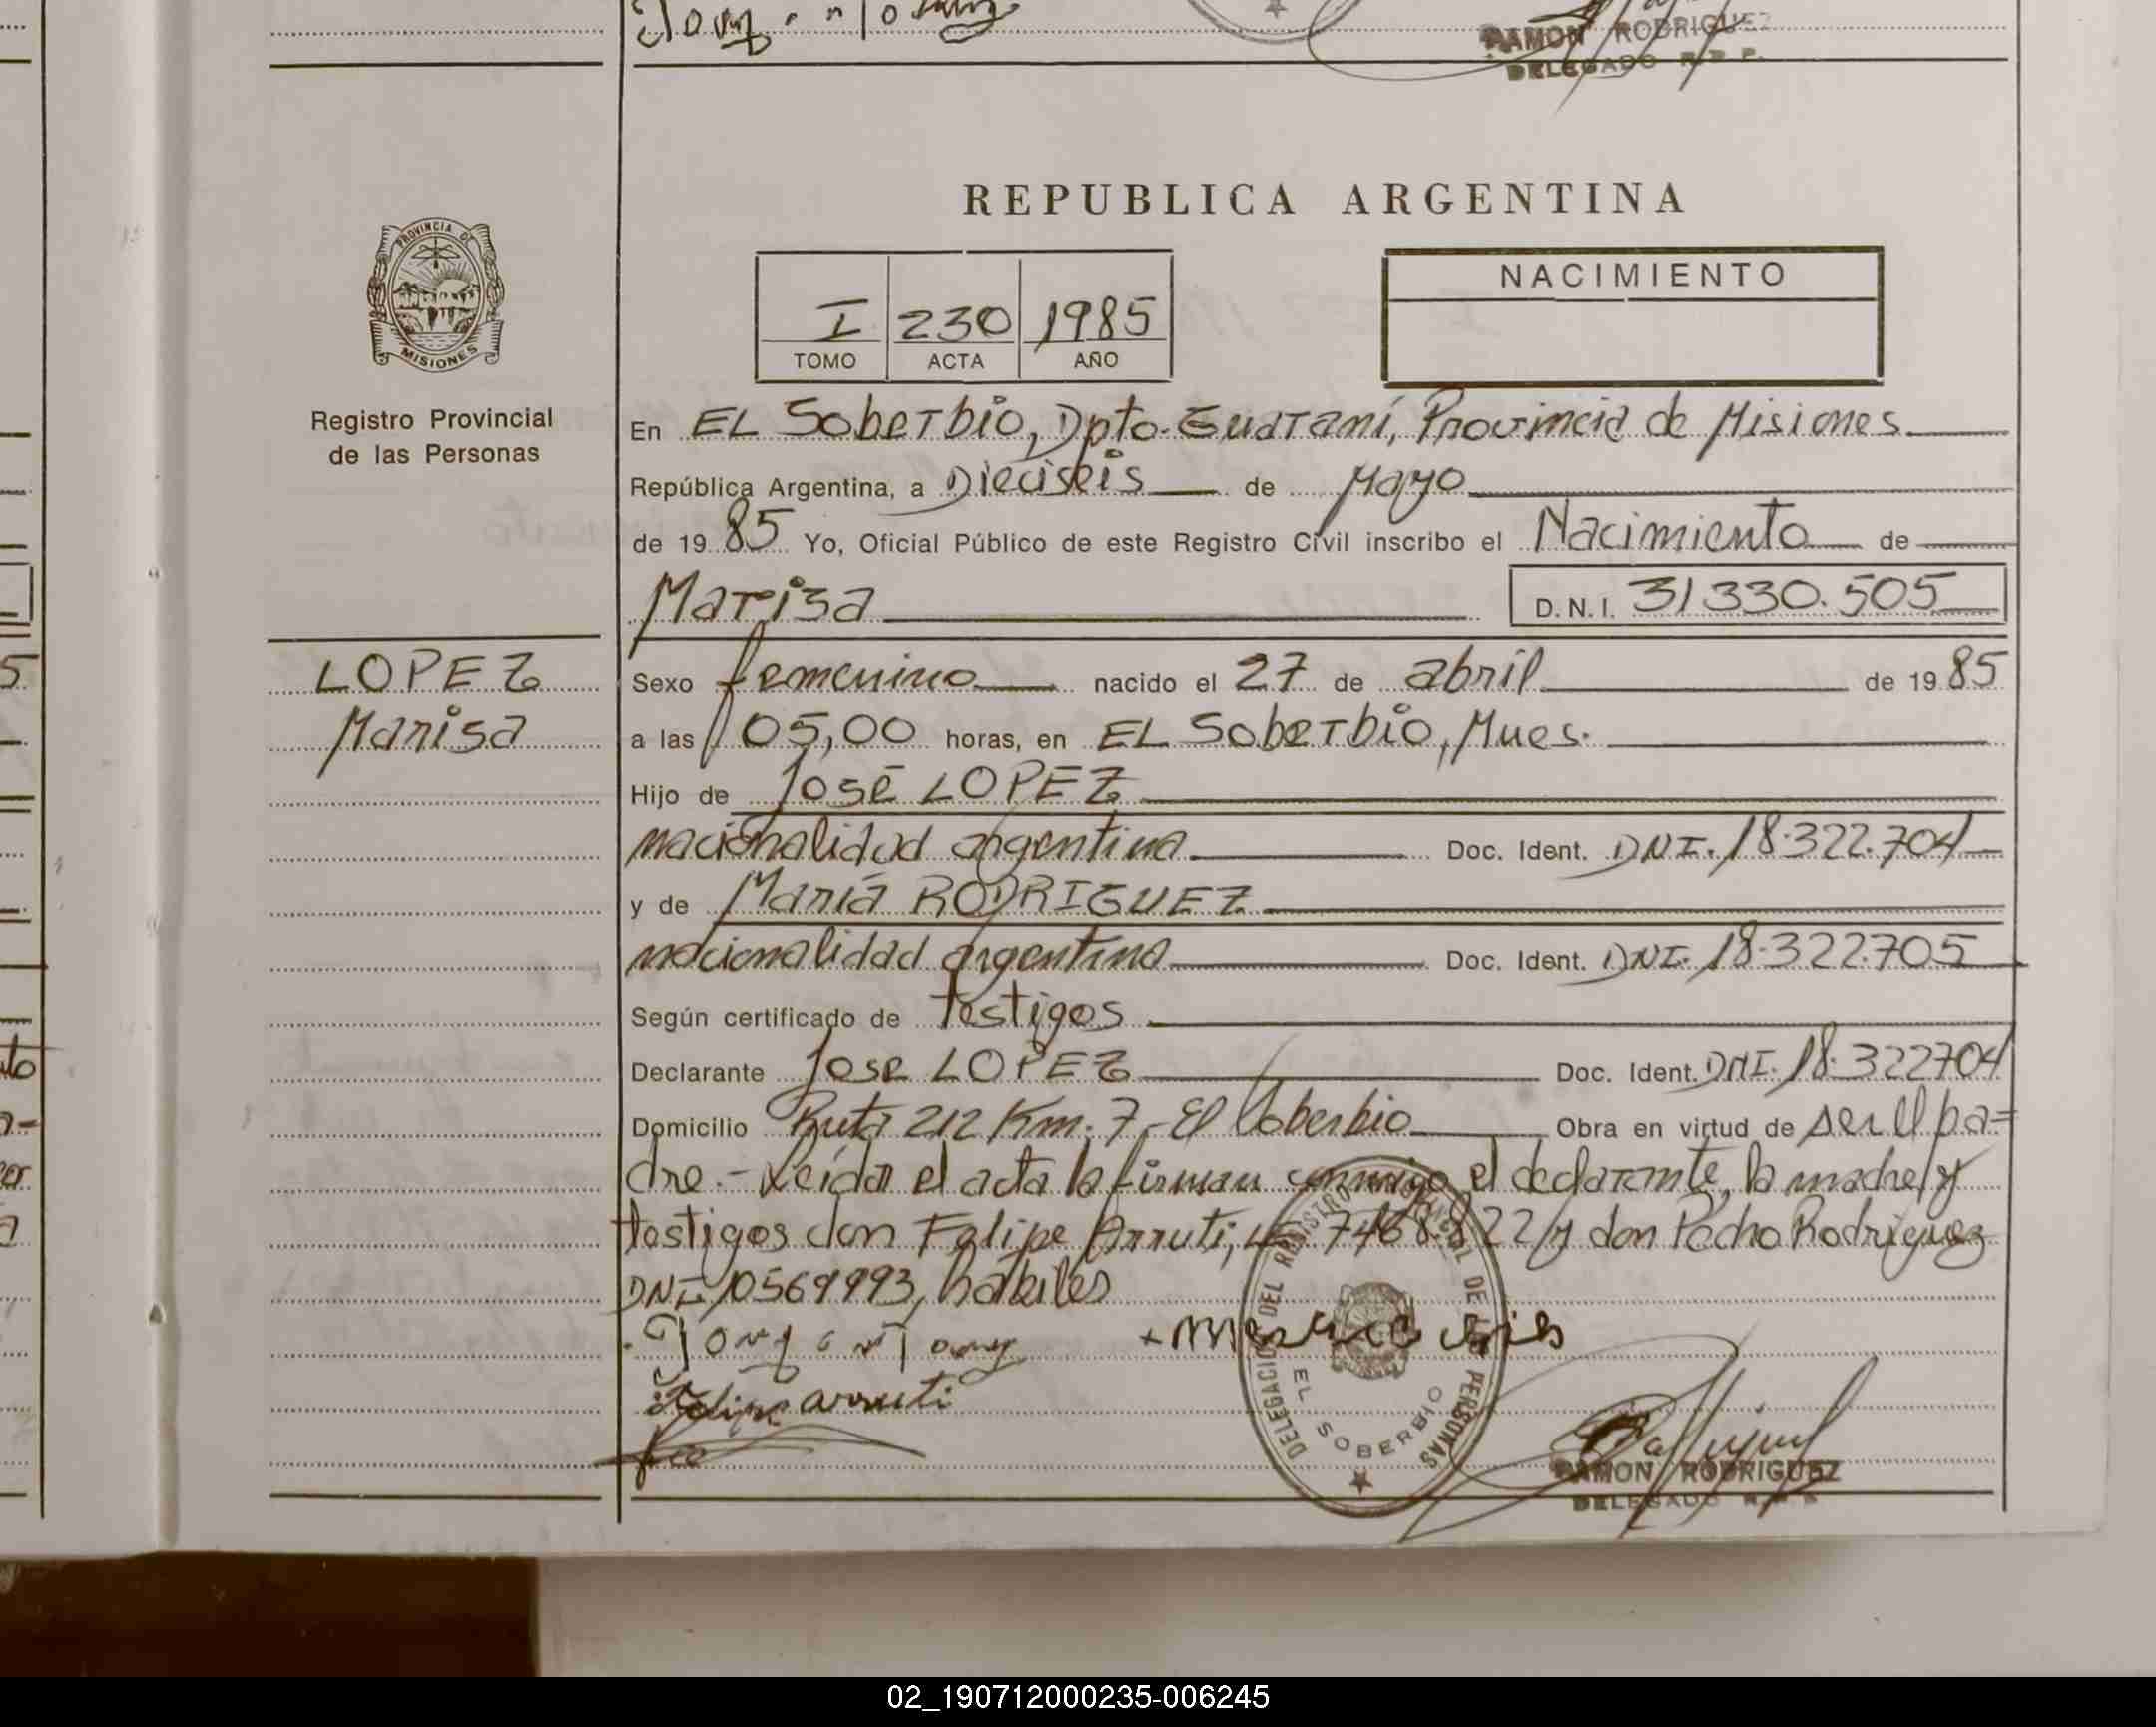 RAMON RODRIGUEZ
DELEGADO R.P.P.
PROVINCIA DE
MISIONES
Registro Provincial
de las Personas
LOPEZ
Marisa
REPUBLICA ARGENTINA
I 230 1985
TOMO ACTA AÑO
NACIMIENTO
En EL Soberbio, Dpto. Guaraní, Provincia de Misiones
República Argentina, a Dieciseis de Mayo
de 19 85 Yo, Oficial Público de este Registro Civil inscribo el Nacimiento de
Marisa D.N.I. 31330.505
Sexo femenino nacido el 27 de abril de 19 85
a las 05,00 horas, en EL Soberbio, Mnes.
Hijo de José LOPEZ
nacionalidad argentina Doc. Ident. DNI. 18.322.704
y de María RODRIGUEZ
nacionalidad argentina Doc. Ident. DNI. 18.322.705
Según certificado de testigos
Declarante Jose LOPEZ Doc. Ident. DNI. 18.322704
Domicilio Ruta 212 Km. 7 - El Soberbio Obra en virtud de ser el pa=
dre.- Leída el acta la firman conmigo el declarante, la madre y
testigos don Felipe Arruti, 7468.822 y don Pocho Rodriguez
DNI 10569993, habiles
Felipe arruti
DELEGACION DEL REGISTRO PROVINCIAL DE PERSONAS
EL SOBERBIO
RAMON RODRIGUEZ
DELEGADO
02_190712000235-006245